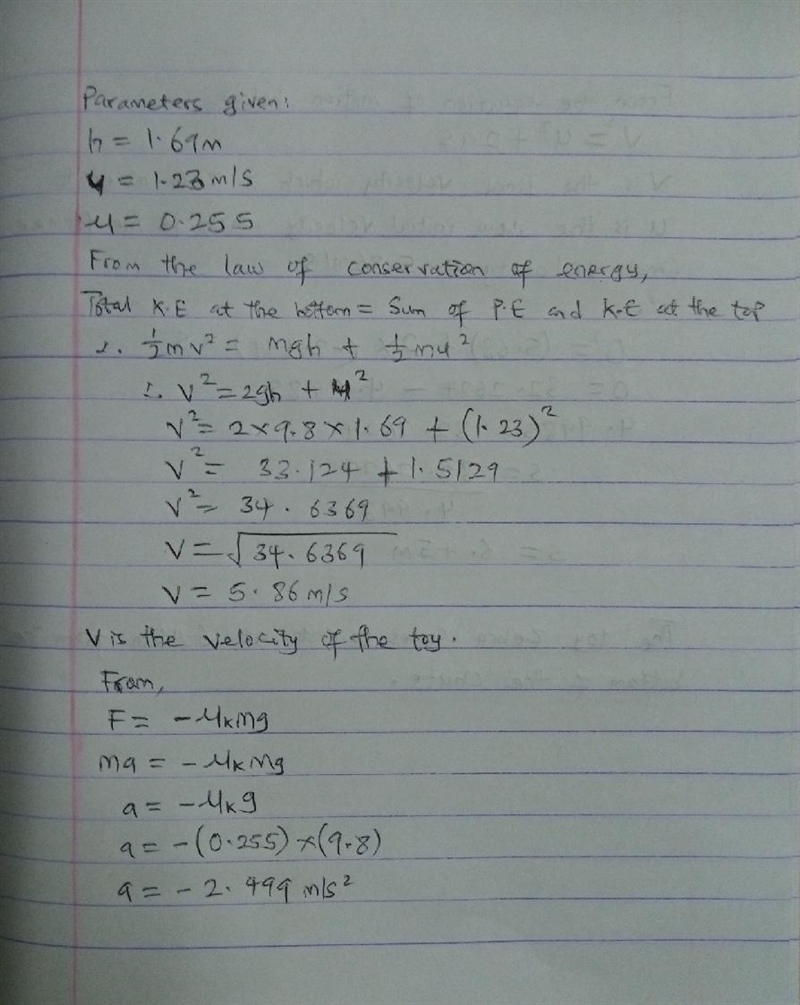 Parameters given:
h = 1.69m
u = 1.23 m/s
μ = 0.255
From the law of conservation of energy,
Total K.E at the bottom = Sum of P.E and K.E at the top
∴ ½mv² = mgh + ½mu²
∴ v² = 2gh + u²
v² = 2×9.8×1.69 + (1.23)²
v² = 33.124 + 1.5129
v² = 34.6369
v = √34.6369
v = 5.86 m/s
V is the velocity of the toy.
From,
F = -μₖmg
ma = -μₖmg
a = -μₖg
a = -(0.255)×(9.8)
a = -2.499 m/s²